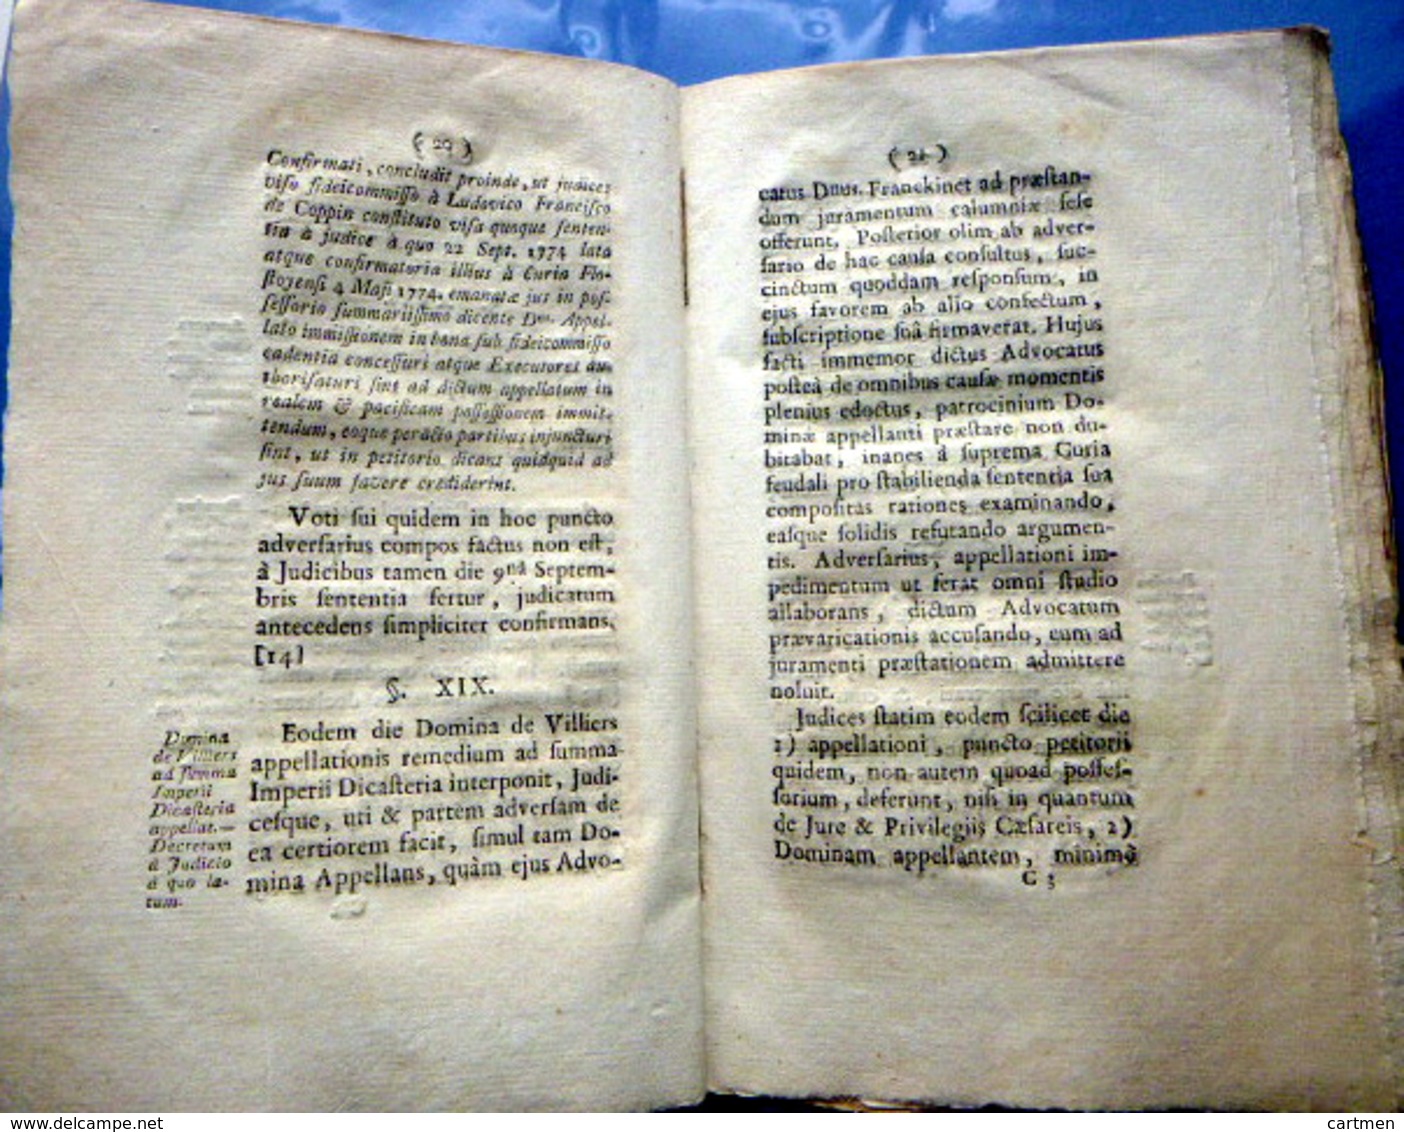 ( 20 )
Confirmati, concludit proinde, ut judices
viso fideicommisso à Ludovico Francisco
de Coppin constituto visa quoque senten-
tia à judice à quo 22 Sept. 1774 lata
atque confirmatoria illius à Curia Flo-
4 Maji 1774. emanatæ jus in pos-
sessorio summariissimo dicente Dno. Appel-
lato immissionem in bona sub fideicommisso
cadentia concessuri atque Executores au-
thorisaturi sint ad dictum appellatum in
realem & pacificam possessionem immit-
tendum, eoque peracto partibus injuncturi
sint, ut in petitorio dicant quidquid ad
jus suum facere crediderint.
Voti sui quidem in hoc puncto
adversarius compos factus non est,
à Judicibus tamen die 9nâ Septem-
bris sententia fertur, judicatum
antecedens simpliciter confirmans.
[14]
§. XIX.
Domina
de Villiers
ad summa
Imperii
Dicasteria
appellat.—
Decretum
à Judicio
à quo la-
tum.
Eodem die Domina de Villiers
appellationis remedium ad summa
Imperii Dicasteria interponit, Judi-
cesque, uti & partem adversam de
ea certiorem facit, simul tam Do-
mina Appellans, quàm ejus Advo-
( 21 )
catus Dnus. Franckinet ad præstan-
dum juramentum calumniæ sese
offerunt. Posterior olim ab adver-
sario de hac causa consultus, suc-
cinctum quoddam responsum, in
ejus favorem ab alio confectum,
subscriptione suâ firmaverat. Hujus
facti immemor dictus Advocatus
posteà de omnibus causæ momentis
plenius edoctus, patrocinium Do-
minæ appellanti præstare non du-
bitabat, inanes à suprema Curia
feudali pro stabilienda sententia sua
compositas rationes examinando,
easque solidis refutando argumen-
tis. Adversarius, appellationi im-
pedimentum ut ferat omni studio
allaborans, dictum Advocatum
prævaricationis accusando, eum ad
juramenti præstationem admittere
noluit.
Judices statim eodem scilicet die
1) appellationi, puncto petitorii
quidem, non autem quoad posses-
sorium, deferunt, nisi in quantum
de Jure & Privilegiis Cæsareis, 2)
Dominam appellantem, minimè
C 3
cartmen